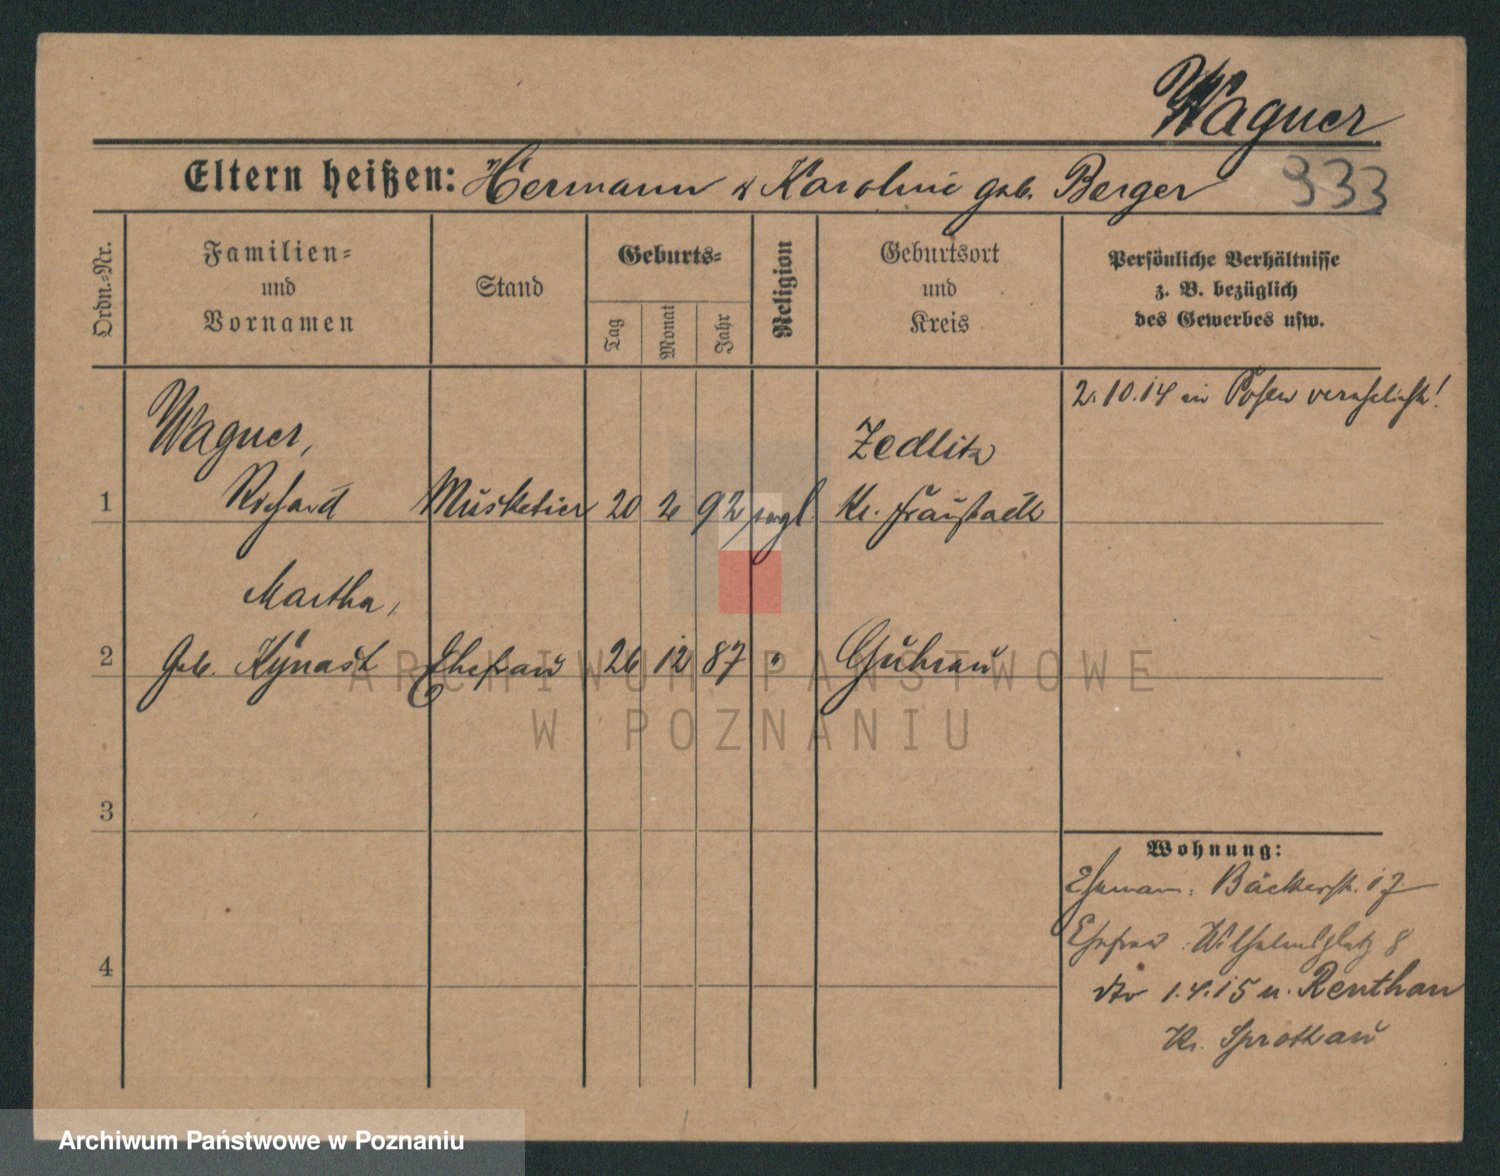 Wagner
Eltern heißen: Hermann & Karoline geb. Berger 933
Ordn.=Nr.
Familien=
und
Vornamen
Stand
Geburts=
Tag
Monat
Jahr
Religion
Geburtsort
und
Kreis
Persönliche Verhältnisse
z. B. bezüglich
des Gewerbes usw.
2.10.14 in Posen verehelicht!
Wagner,
Zedlitz
1 Richard Musketier 20 2 92 evgl Kr. Fraustadt
Martha,
2 geb. Kynast Ehefrau 26 12 87 " Guhrau
3
Wohnung:
Ehemann: Bäckerstr. 17
Ehefrau: Wilhelmsplatz 8
4
1.4.15 n. Reuthau
Kr. Sprottau
ARCHIWUM PAŃSTWOWE
W POZNANIU
Archiwum Państwowe w Poznaniu